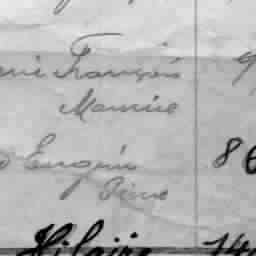 François
Maurice
Eugène 86
Pierre
Hilaire 14